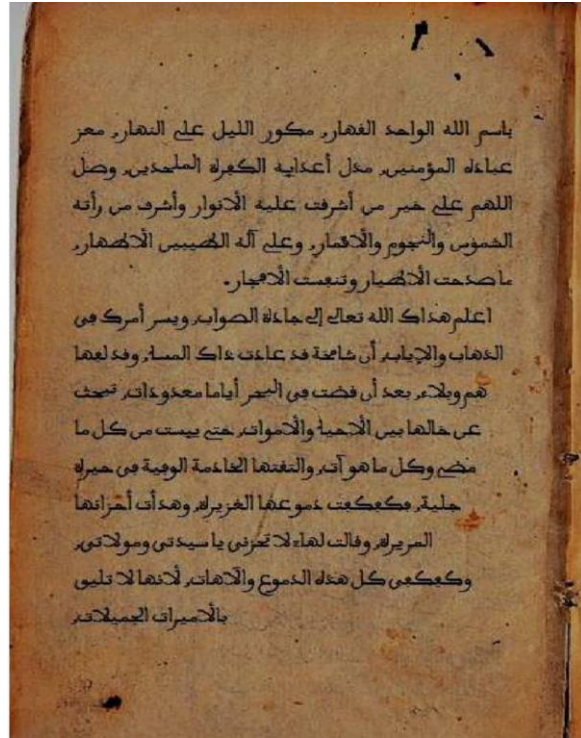 باسم الله الواحد القهار، مكور الليل على النهار، معز
عباده المؤمنين، مذل أعدايه الكفرة الملحدين، وصل
اللهم على خير من أشرقت عليه الأنوار وأشرف من رأته
الشموس والنجوم والأقمار، وعلى آله الطيبين الأطهار،
ما صدحت الأطيار وتنفست الأفجار.
اعلم هداك الله تعالى إلى جادة الصواب، ويسر أمرك في
الذهاب والإياب، أن شامخة قد عادت ذاك المسا، وقد لفها
هم وبلاء، بعد أن قضت في البحر أياما معدودات، تبحث
عن خالها بين الأحيا والأموات، حتى ييست من كل ما
مضى وكل ما هو آت، والتقتها الخادمة الوفية في حيرة
جلية، فكفكفت دموعها الغزيرة، وهدأت أحزانها
المريرة، وقالت لها، لا تحزني يا سيدتي ومولاتي،
وكفكفي كل هذه الدموع والآهات، لأنها لا تليق
بالأميرات الجميلات،